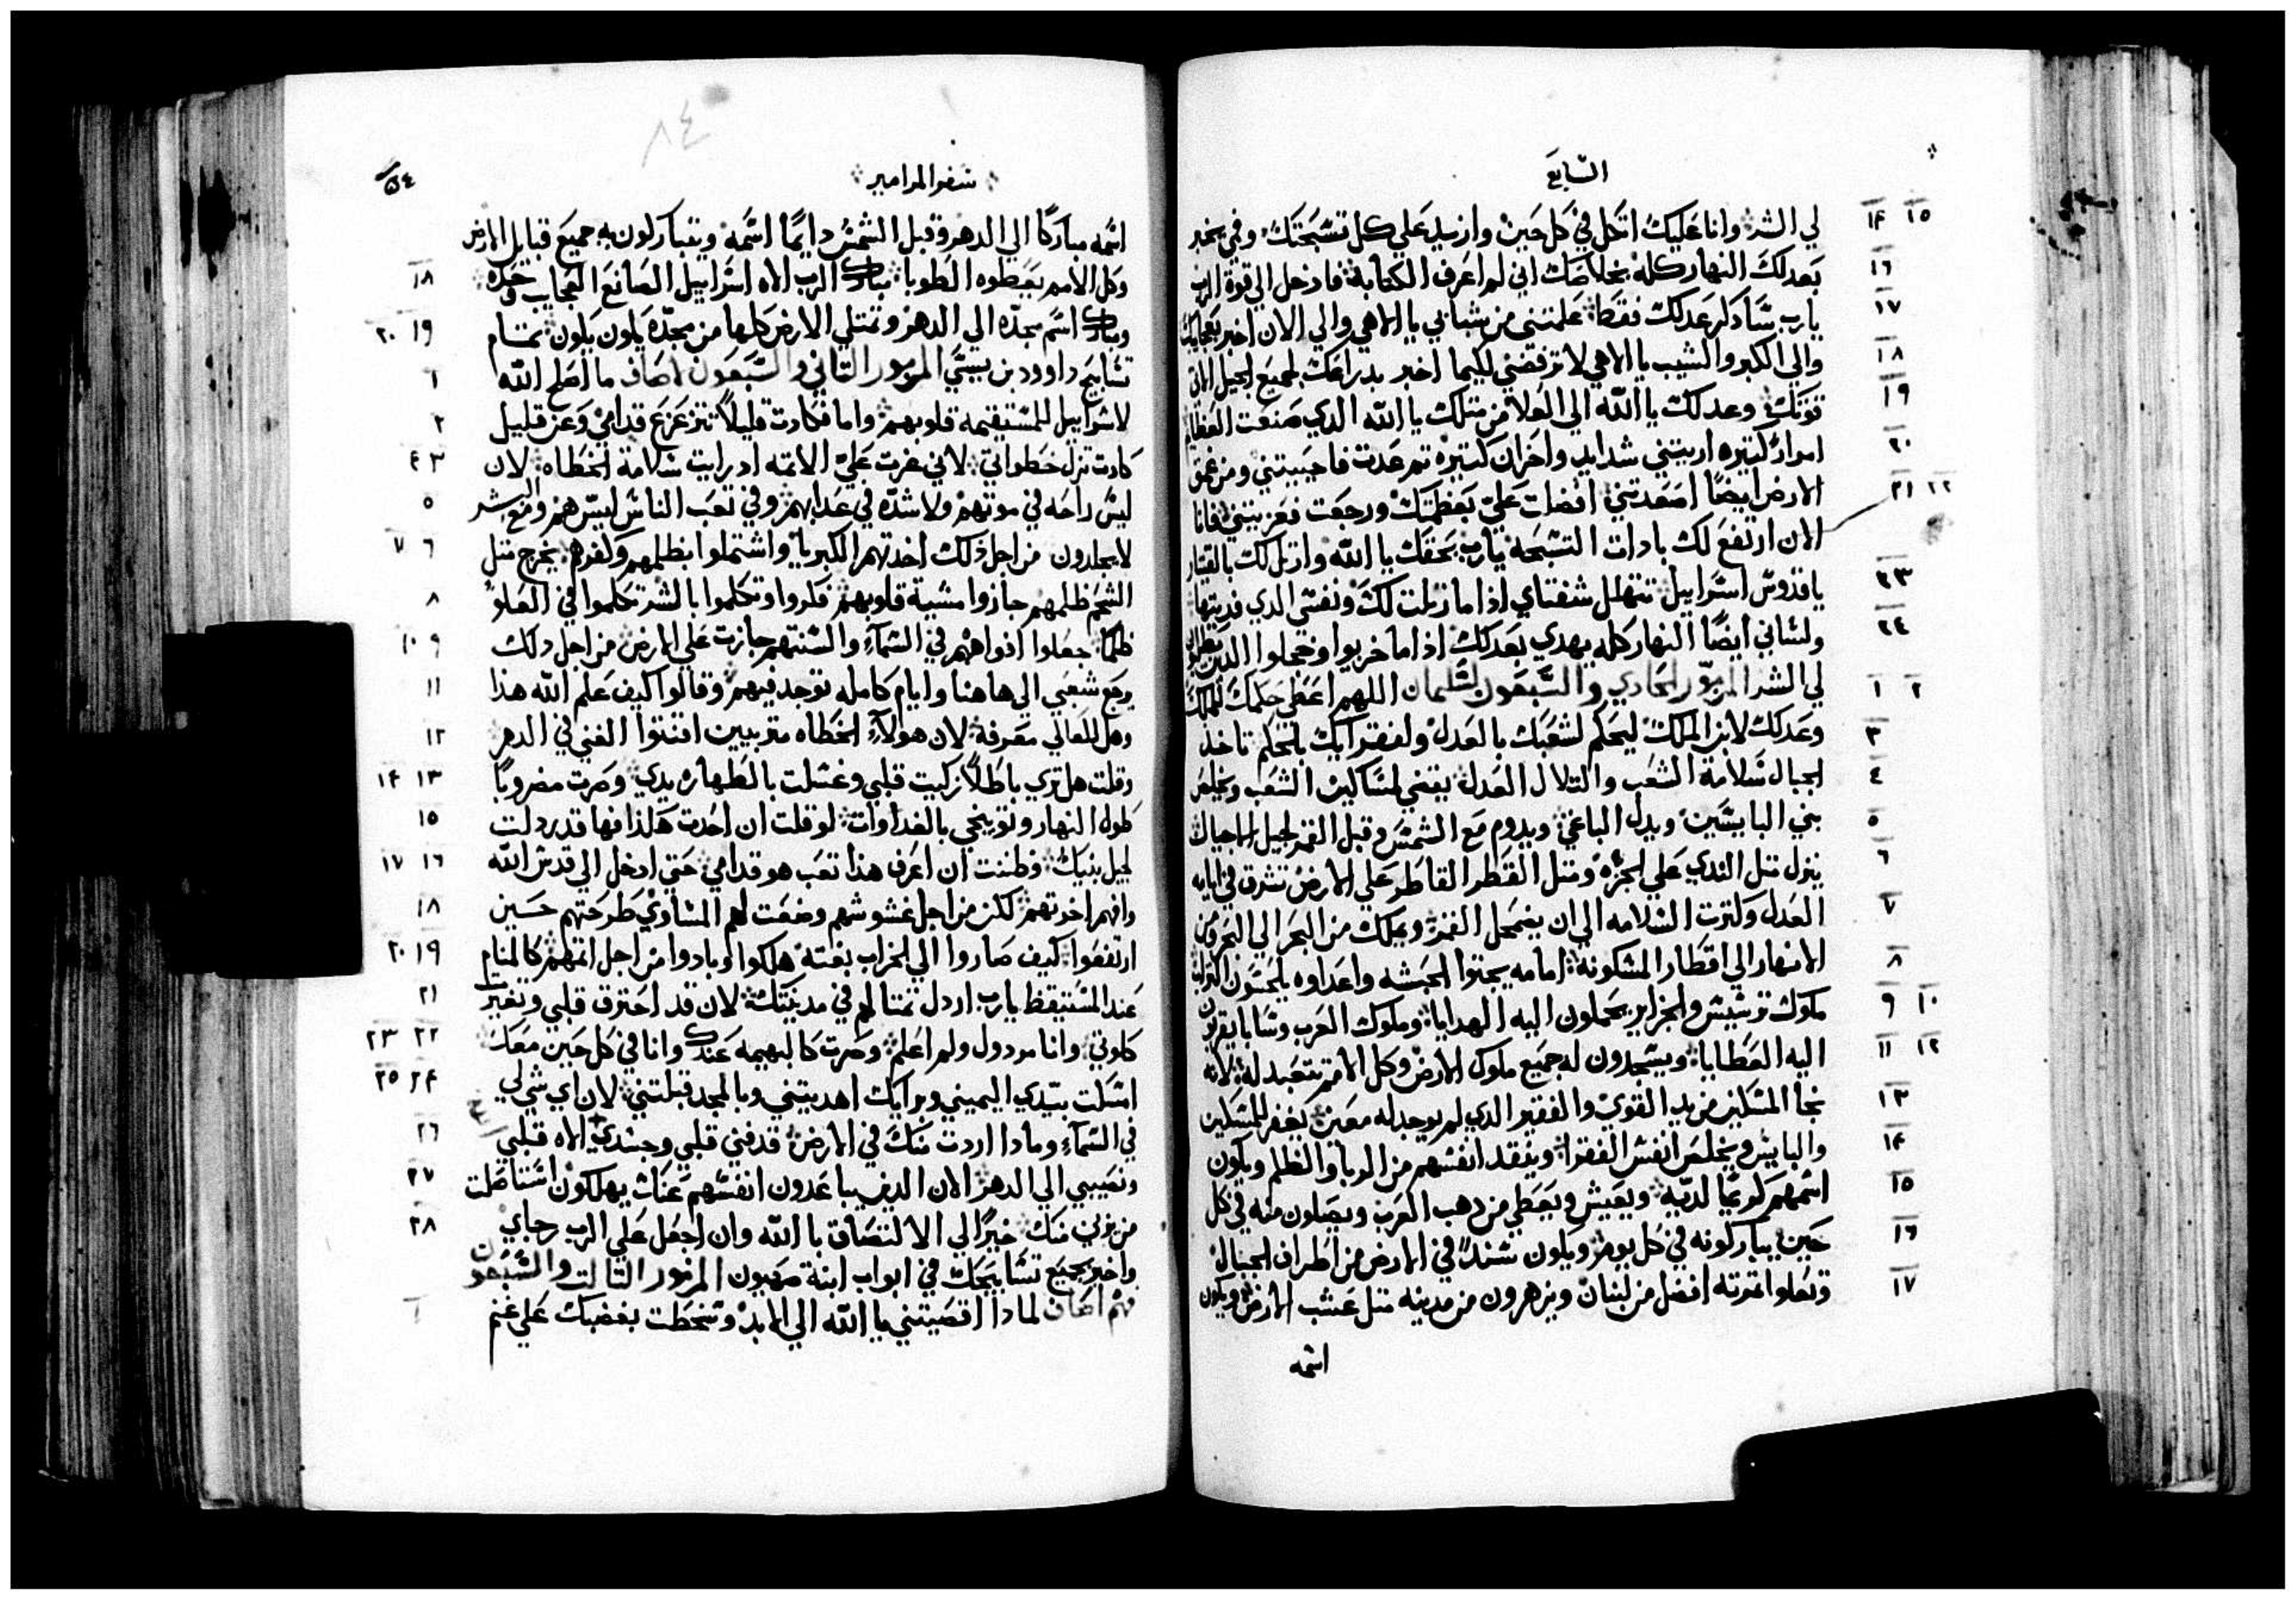 السابع
لي الشر وانا عليك اتكل في كل حين وازيد علي كل تسبحتك وفمي يخبر
بعدلك النهار كله بخلاصك اني لم اعرف الكتابة فادخل الي قوة الرب
يارب ساذكر عدلك فقط علمتني من شبابي يا الاهي والي الان اخبر بعجايبك
والي الكبر والشيب يا الاهي لا ترفضني لكيما اخبر بدراعك لجميع الجيل الاتي
قوتك وعدلك يا الله الي العلا من متلك يا الله الدي صنعت العظايم
امرار كتيره اريتني شدايد واحزان كتيره تم عدت فاحييتني ومن عمق
الارض ايضا اصعدتني افضلت علي بعظمتك ورجعت فعزيتني فانا
الان ارتفع لك بادات التسبحه يارب بحقك يا الله وارتل لك بالقيتار
يا قدوس اسراييل تتهلل شفتاي اذا ما رتلت لك ونفسي الدي فديتها
ولساني ايضا النهار كله يهدي بعدلك اذا ما خزيوا وخجلوا الدين يطلبون
لي الشر المزمور الحادي والسبعون لسليمان اللهم اعطي حكمك للملك
وعدلك لابن الملك ليحكم لشعبك بالعدل ولفقرايك بالحكم تاخذ
الجبال سلامة الشعب والتلال العدل يقضي لمساكين الشعب ويخلص
بني البايسين ويدل الباغي ويدوم مع الشمس وقبل القمر لجيل الاجيال
ينزل متل الندي علي الجزه ومتل القطر القاطر علي الارض تشرق في ايامه
العدل وكترت السلامه الي ان يضمحل القمر ويملك من البحر الي البحر ومن
الانهار الي اقطار المسكونة امامه يجتوا الحبشه واعداوه يلحسون التراب
ملوك ترشيش والجزاير يحملون اليه الهدايا وملوك العرب وسابا يقربون
اليه العطايا ويسجدون له جميع ملوك الارض وكل الامم تتعبد له لانه
نجا المسكين من يد القوي والفقير الدي لم يوجد له معين يغفر للمسكين
والبايس ويخلص انفس الفقرا وينقد انفسهم من الربا والظلم ويكون
اسمهم كريما لديه ويعيش ويعطي من دهب العرب ويصلون منه في كل
حين يباركونه في كل يوم ويكون سندا في الارض من اطراف الجبال
وتعلوا تمرته افضل من لبنان ويزهرون من مدينه متل عشب الارض ويكون
اسمه
١٤ ١٥
١٦
١٧
١٨
١٩
٢٠
٢١ ٢٢
٢٣
٢٤
١ ٢
٣
٤
٥
٦
٧
٨
٩ ١٠
١١ ١٢
١٣
١٤
١٥
١٦
١٧
٨٤
سفر المزامير
٥٤
اسمه مباركا الي الدهر وقبل الشمس دايما اسمه ويتباركون به جميع قبايل الارض
وكل الامم يعطوه الطوبا مبارك الرب الاه اسراييل الصانع العجايب وحده
ومبارك اسم مجده الي الدهر وتمتلي الارض كلها من مجده يكون يكون تمام
تسابيح داوود بن يسي المزمور التاني والسبعون لاصاف ما اصلح الله
لاسراييل للمستقيمه قلوبهم واما فكادت قليلا تتزعزع قدامي وعن قليل
كادت تزل خطواتي لاني غرت علي الاتمه اد رايت سلامة الخطاه لان
ليس راحه في موتهم ولا شده في عدابهم وفي تعب الناس ليس هم ومع البشر
لا يجلدون من اجل ذلك اخدتهم الكبريا واشتملوا بظلمهم وكفرهم يخرج متل
الشحم ظلمهم جازوا مشية قلوبهم فكروا وتكلموا بالشر تكلموا في العلو
ظلما جعلوا افواههم في السماء والسنتهم جازت علي الارض من اجل دلك
يرجع شعبي الي هاهنا وايام كامله توجد فيهم وقالوا كيف علم الله هذا
وهل للعالي معرفة لان هولاء الخطاه متربيين اقتنوا الغني في الدهر
وقلت هل تري باطلا زكيت قلبي وغسلت بالطهاره يدي وصرت مضروبا
طول النهار وتوبيخي بالغداوات لو قلت ان احدت هكذا فها قد ردلت
لجيل بنيك وظننت ان اعرف هذا تعب هو قدامي حتي ادخل الي قدس الله
وافهم اخرتهم لكن من اجل غشوشهم وضعت لهم المساوي طرحتهم حسين
ارتفعوا كيف صاروا الي الخراب بغته هلكوا وبادوا من اجل اتمهم كالمنام
عند المستيقظ يارب اردل تمتالهم في مدينتك لان قد احترق قلبي وتغيرت
كلوتي وانا مردول ولم اعلم وصرت كالبهيمه عندك وانا في كل حين معك
امسكت بيدي اليميني وبرايك اهديتني وبالمجد قبلتني لان اي شي لي
في السماء ومادا اردت منك في الارض قد فني قلبي وجسدي الاه قلبي
ونصيبي الي الدهر الان الدين يباعدون انفسهم عنك يهلكون استاصلت
من يزني منك خير الي الالتصاق بالله وان اجعل علي الرب رجاي
واخبر بجميع تسابيحك في ابواب ابنة صهيون المزمور التالت والسبعون
فهم اصاف لمادا اقصيتني يا الله الي الابد وسخطت بغضبك علي غنم
١٨
١٩ ٢٠
١
٢
٣ ٤
٥
٦ ٧
٨
٩ ١٠
١١
١٢
١٣ ١٤
١٥
١٦ ١٧
١٨
١٩ ٢٠
٢١
٢٢ ٢٣
٢٤ ٢٥
٢٦
٢٧
٢٨
١